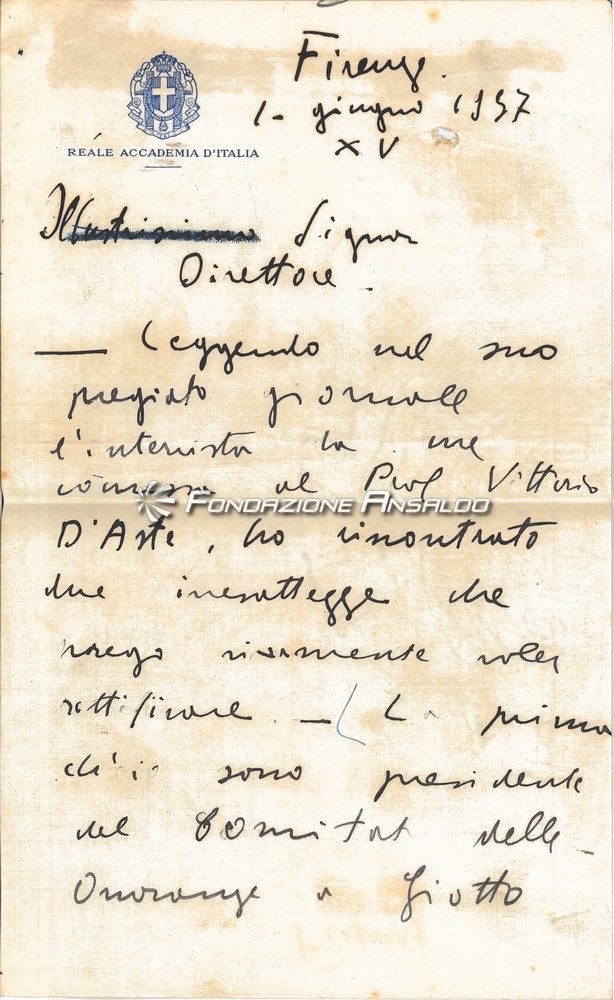 Firenze.
1- giugno 1937
XV
REALE ACCADEMIA D'ITALIA
Illustrissimo Signor
Direttore.
— Leggendo nel suo
pregiato giornale
l'intervista da me
concessa al Prof Vittorio
FONDAZIONE ANSALDO
D'Aste, ho riscontrato
due inesattezze che
prego vivamente voler
rettificare. — ( La prima
ch'io sono presidente
del Comitato delle
Onoranze a Giotto